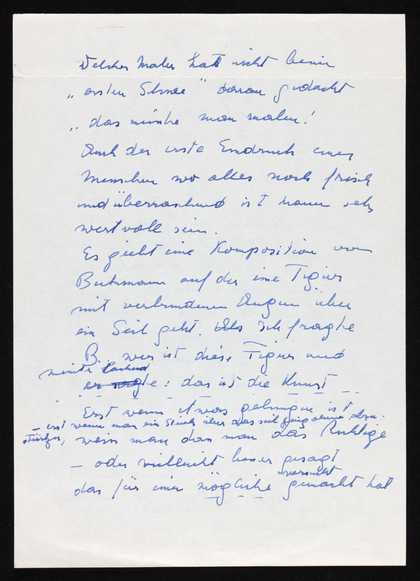 Welcher Maler hatt nicht beim
„ersten Schnee" daran gedacht
„das müsste man malen!
Auch der erste Eindruck eines
Menschen wo alles noch frisch
und überraschend ist kann sehr
wertvoll sein.
Es giebt eine Komposition von
Beckmann auf der eine Figur
mit verbundenen Augen über
ein Seil geht. Als ich fragte
B. wer ist diese Figur und
meinte lachend
er sagte: das ist die Kunst
Erst wenn etwas gelungen ist
– erst wenn man ein Stück über das Seil ging ohne
stürzen, weiss man das man das Richtige
– oder vielleicht besser gesagt
versucht
das für einen mögliche gemacht hat